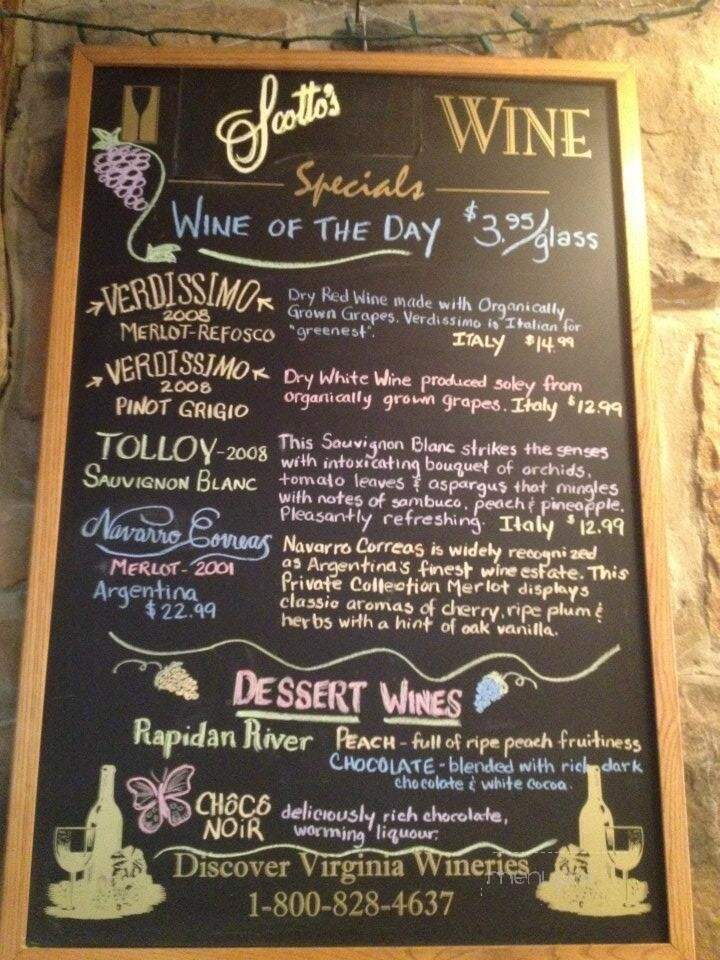 Scotto's
WINE
Specials
WINE OF THE DAY $3.95/glass
VERDISSIMO
2008
MERLOT-REFOSCO
Dry Red Wine made with Organically
Grown Grapes. Verdissimo is Italian for
"greenest".
ITALY $14.99
VERDISSIMO
2008
PINOT GRIGIO
Dry White Wine produced soley from
organically grown grapes. Italy $12.99
TOLLOY-2008
SAUVIGNON BLANC
This Sauvignon Blanc strikes the senses
with intoxicating bouquet of orchids,
tomato leaves & aspargus that mingles
with notes of sambuco, peach & pineapple.
Pleasantly refreshing. Italy $12.99
Navarro Correas
MERLOT-2001
Argentina
$22.99
Navarro Correas is widely recognized
as Argentina's finest wine estate. This
Private Collection Merlot displays
classic aromas of cherry, ripe plum &
herbs with a hint of oak vanilla.
DESSERT WINES
Rapidan River PEACH - full of ripe peach fruitiness
CHOCOLATE - blended with rich dark
chocolate & white cocoa.
CHÔCÔ
NOIR
deliciously rich chocolate,
warming liquour.
Discover Virginia Wineries
1-800-828-4637